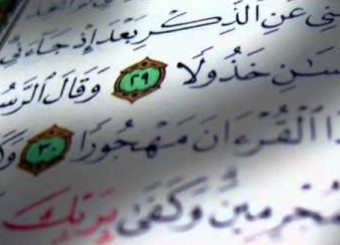 ـنِى عَنِ ٱلذِّكْرِ بَعْدَ إِذْ جَآءَنِى
ـسَـٰنِ خَذُولًا ٢٩ وَقَالَ ٱلرَّسُـ
ـذَا ٱلْقُرْءَانَ مَهْجُورًا ٣٠ وَكَـ
ـمُجْرِمِينَ وَكَفَىٰ بِرَبِّكَ